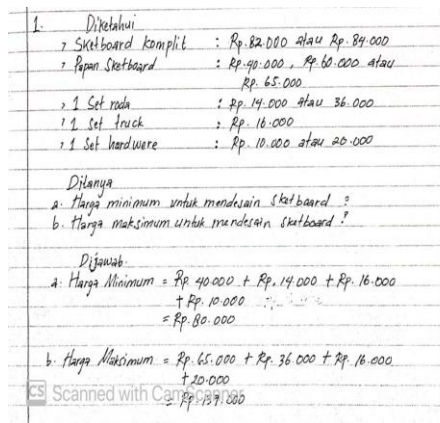 1. Diketahui
> Sketboard komplit : Rp. 82.000 atau Rp. 84.000
> Papan Sketboard : Rp. 40.000, Rp. 60.000 atau
Rp. 65.000
> 1 Set roda : Rp. 14.000 atau 36.000
> 1 Set truck : Rp. 16.000
> 1 Set hardwere : Rp. 10.000 atau 20.000
Ditanya
a. Harga minimum untuk mendesain sketboard ?
b. Harga maksimum untuk mendesain sketboard ?
Dijawab.
a. Harga Minimum = Rp. 40.000 + Rp. 14.000 + Rp. 16.000
+ Rp. 10.000
= Rp. 80.000
b. Harga Maksimum = Rp. 65.000 + Rp. 36.000 + Rp. 16.000
+ 20.000
= Rp. 137.000
CS Scanned with CamScanner